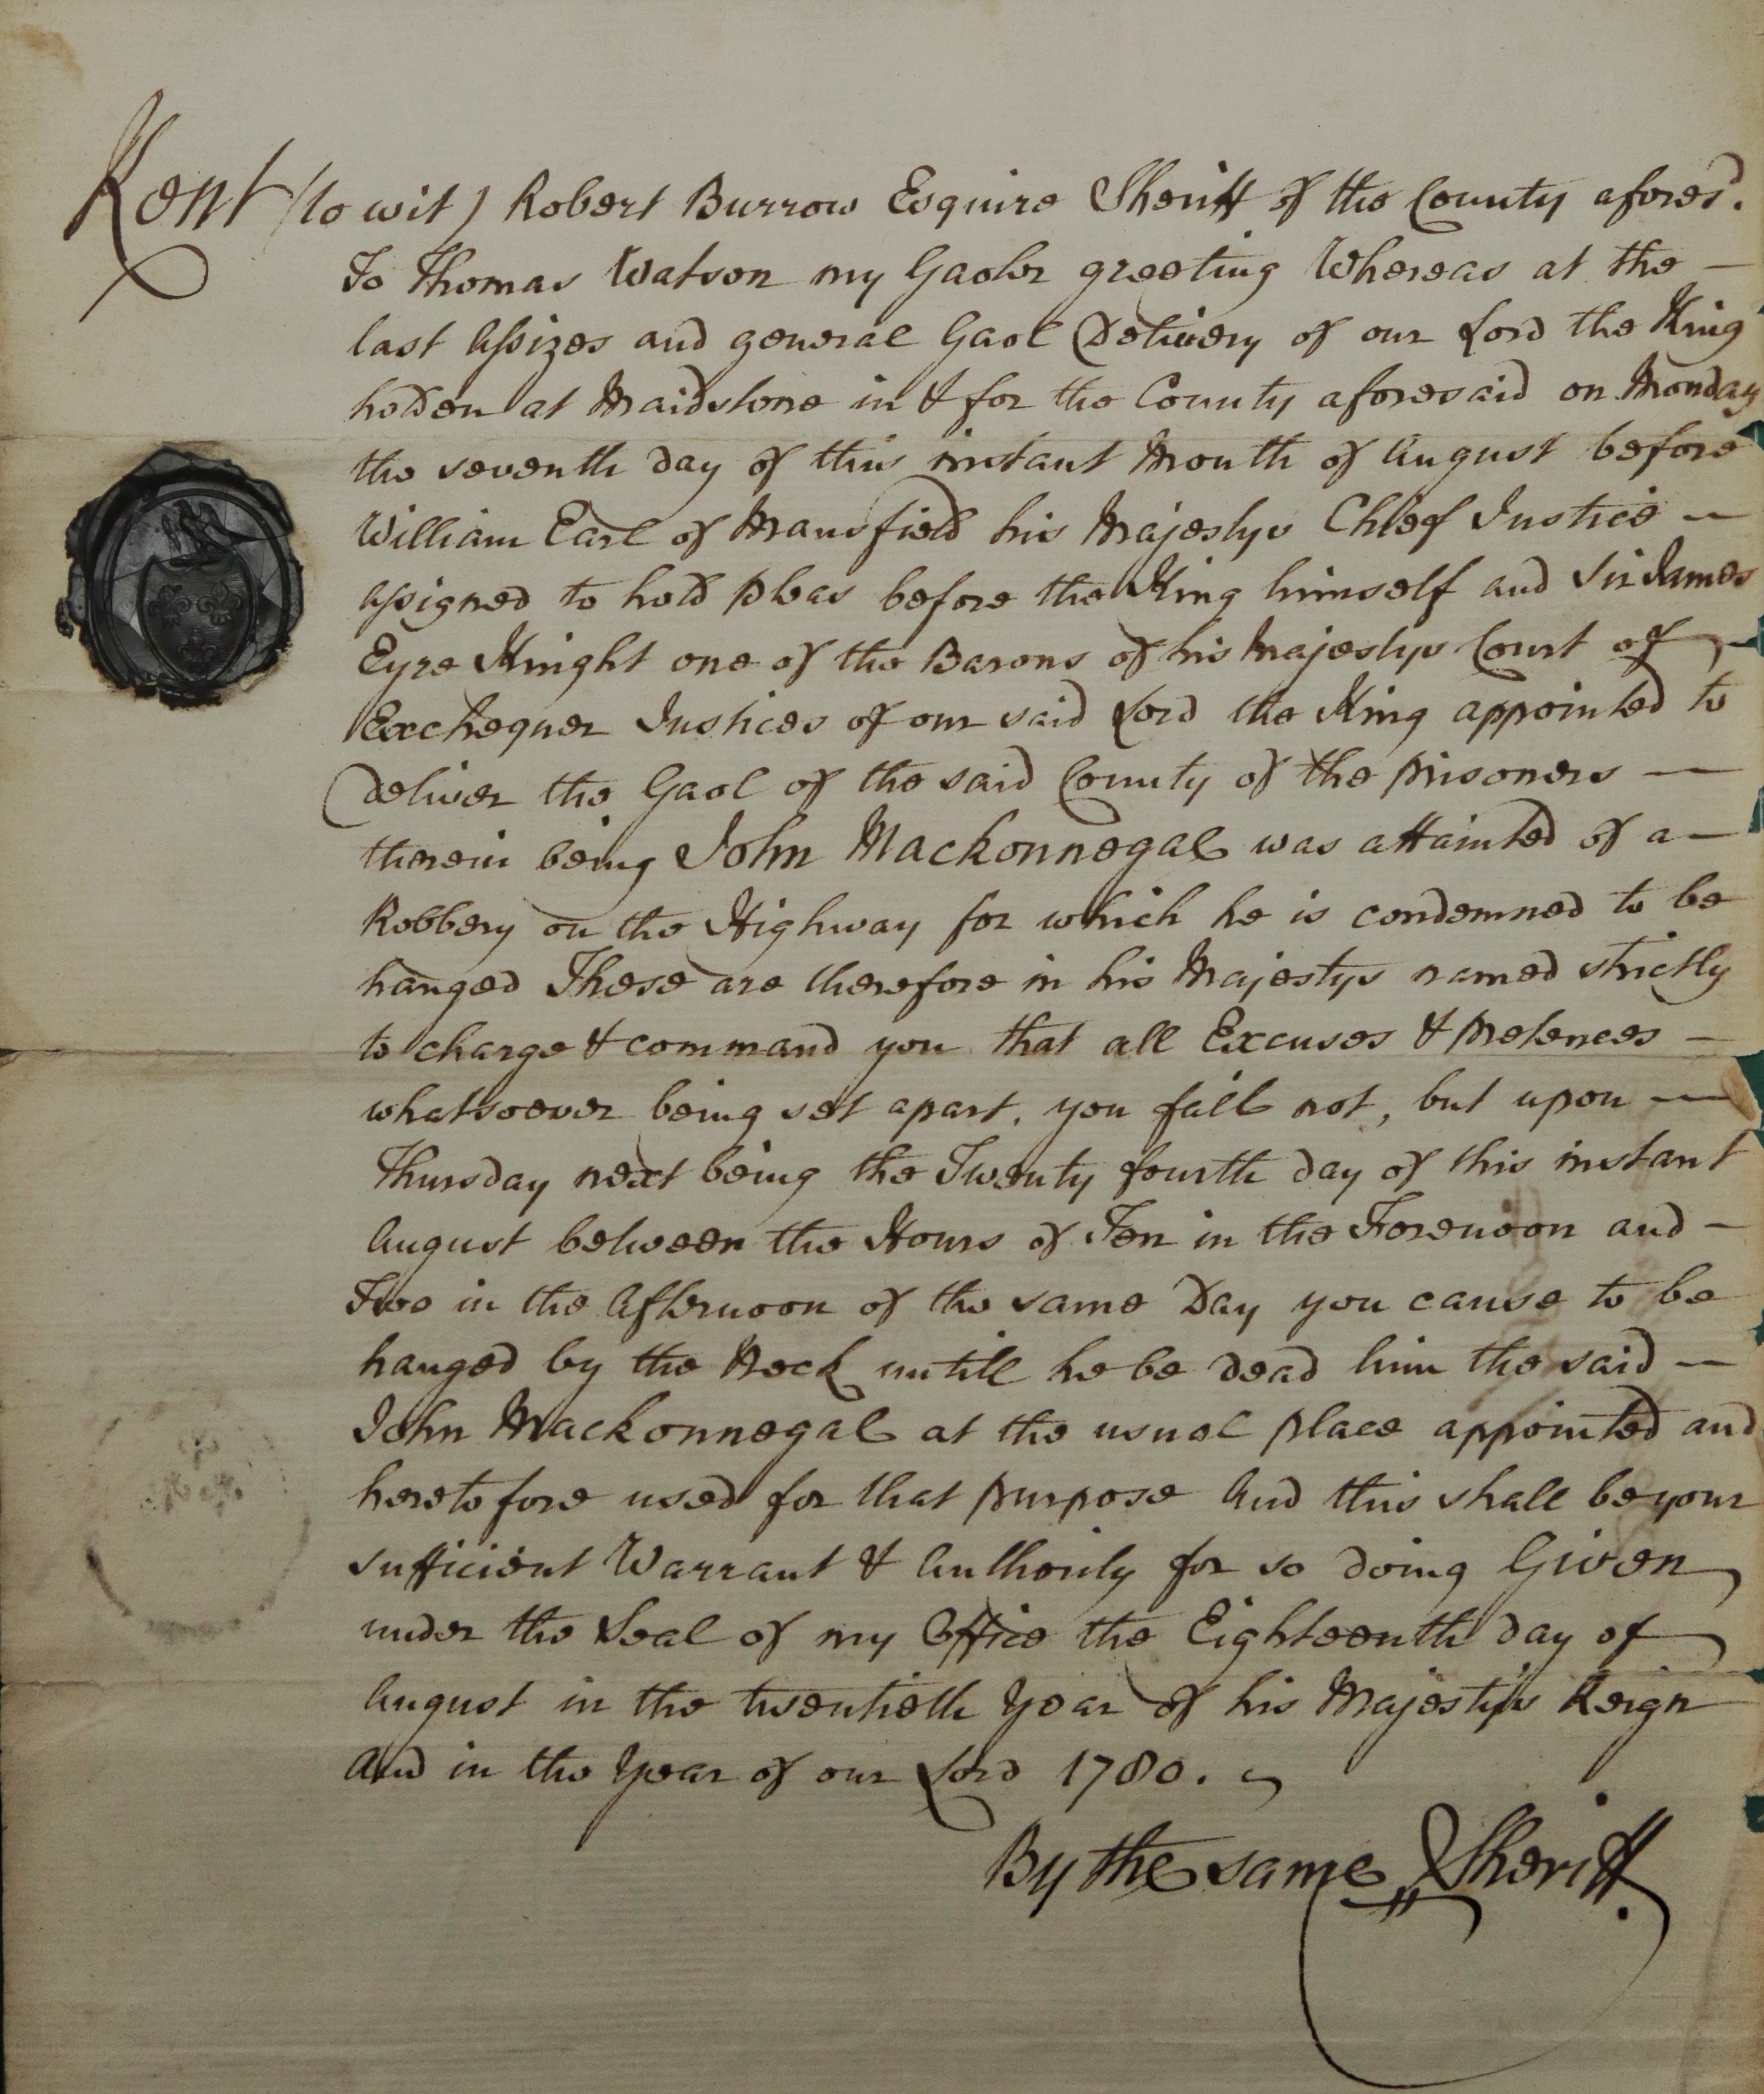 Kent (to wit) Robert Burrow Esquire Sheriff of the County aforesd.
To Thomas Watson my Gaoler greeting Whereas at the —
last Assizes and general Gaol Delivery of our Lord the King
holden at Maidstone in & for the County aforesaid on Monday
the seventh day of this instant Month of August before
William Earl of Mansfield his Majestys Chief Justice —
assigned to hold pleas before the King himself and Sir James
Eyre Knight one of the Barons of his Majestys Court of —
Exchequer Justices of our said Lord the King appointed to
deliver the Gaol of the said County of the prisoners —
therein being John Mackonnegal was attainted of a —
Robbery on the Highway for which he is condemned to be
hanged These are therefore in his Majestys named strictly
to charge & command you that all Excuses & pretences —
whatsoever being set apart, you fail not, but upon —
Thursday next being the Twenty fourth day of this instant
August between the Hours of Ten in the Forenoon and —
Two in the Afternoon of the same Day you cause to be
hanged by the Neck untill he be dead him the said —
John Mackonnegal at the usual place appointed and
heretofore used for that purpose And this shall be your
sufficient Warrant & Authority for so doing Given
under the Seal of my Office the Eighteenth day of
August in the twentieth Year of his Majesty's Reign
And in the Year of our Lord 1780.
By the same Sheriff.